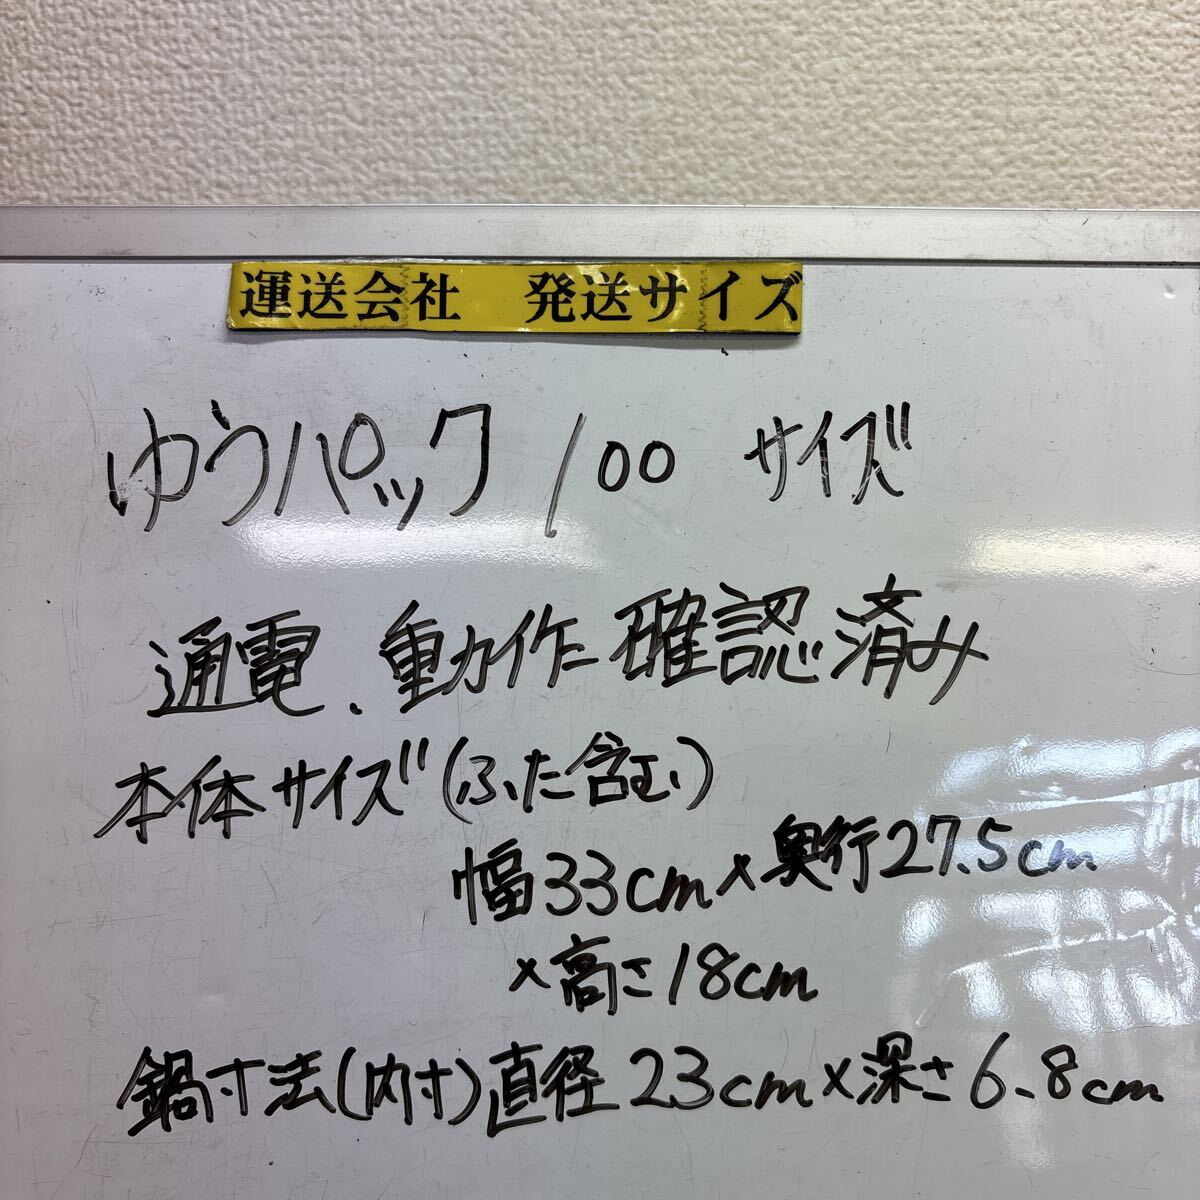 運送会社　発送サイズ
ゆうパック 100 サイズ
通電、動作確認済み
本体サイズ(ふた含む)
幅33cm×奥行27.5cm
×高さ18cm
鍋寸法(内寸)直径23cm×深さ6.8cm